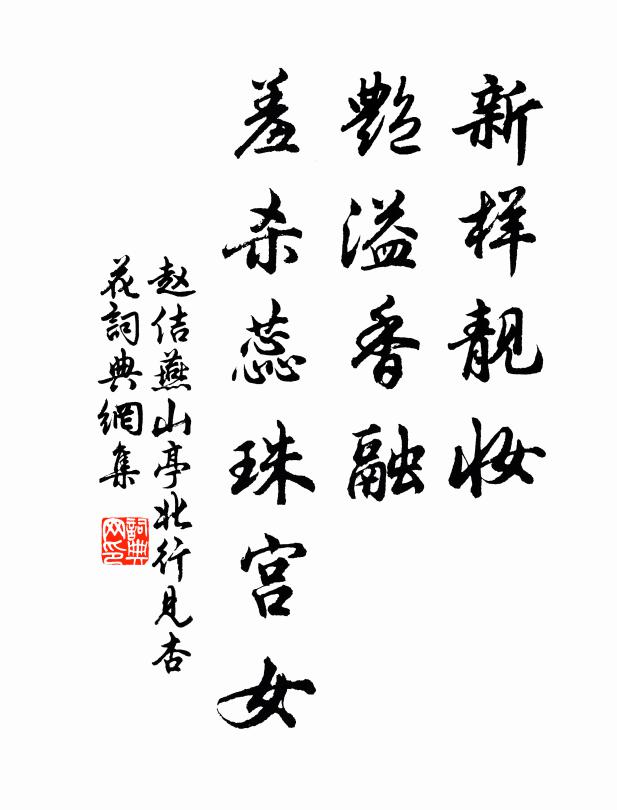 新样靓妆
艷溢香融
羞杀蕊珠宫女
赵佶燕山亭北行见杏
花詞典網集
詞典
网印